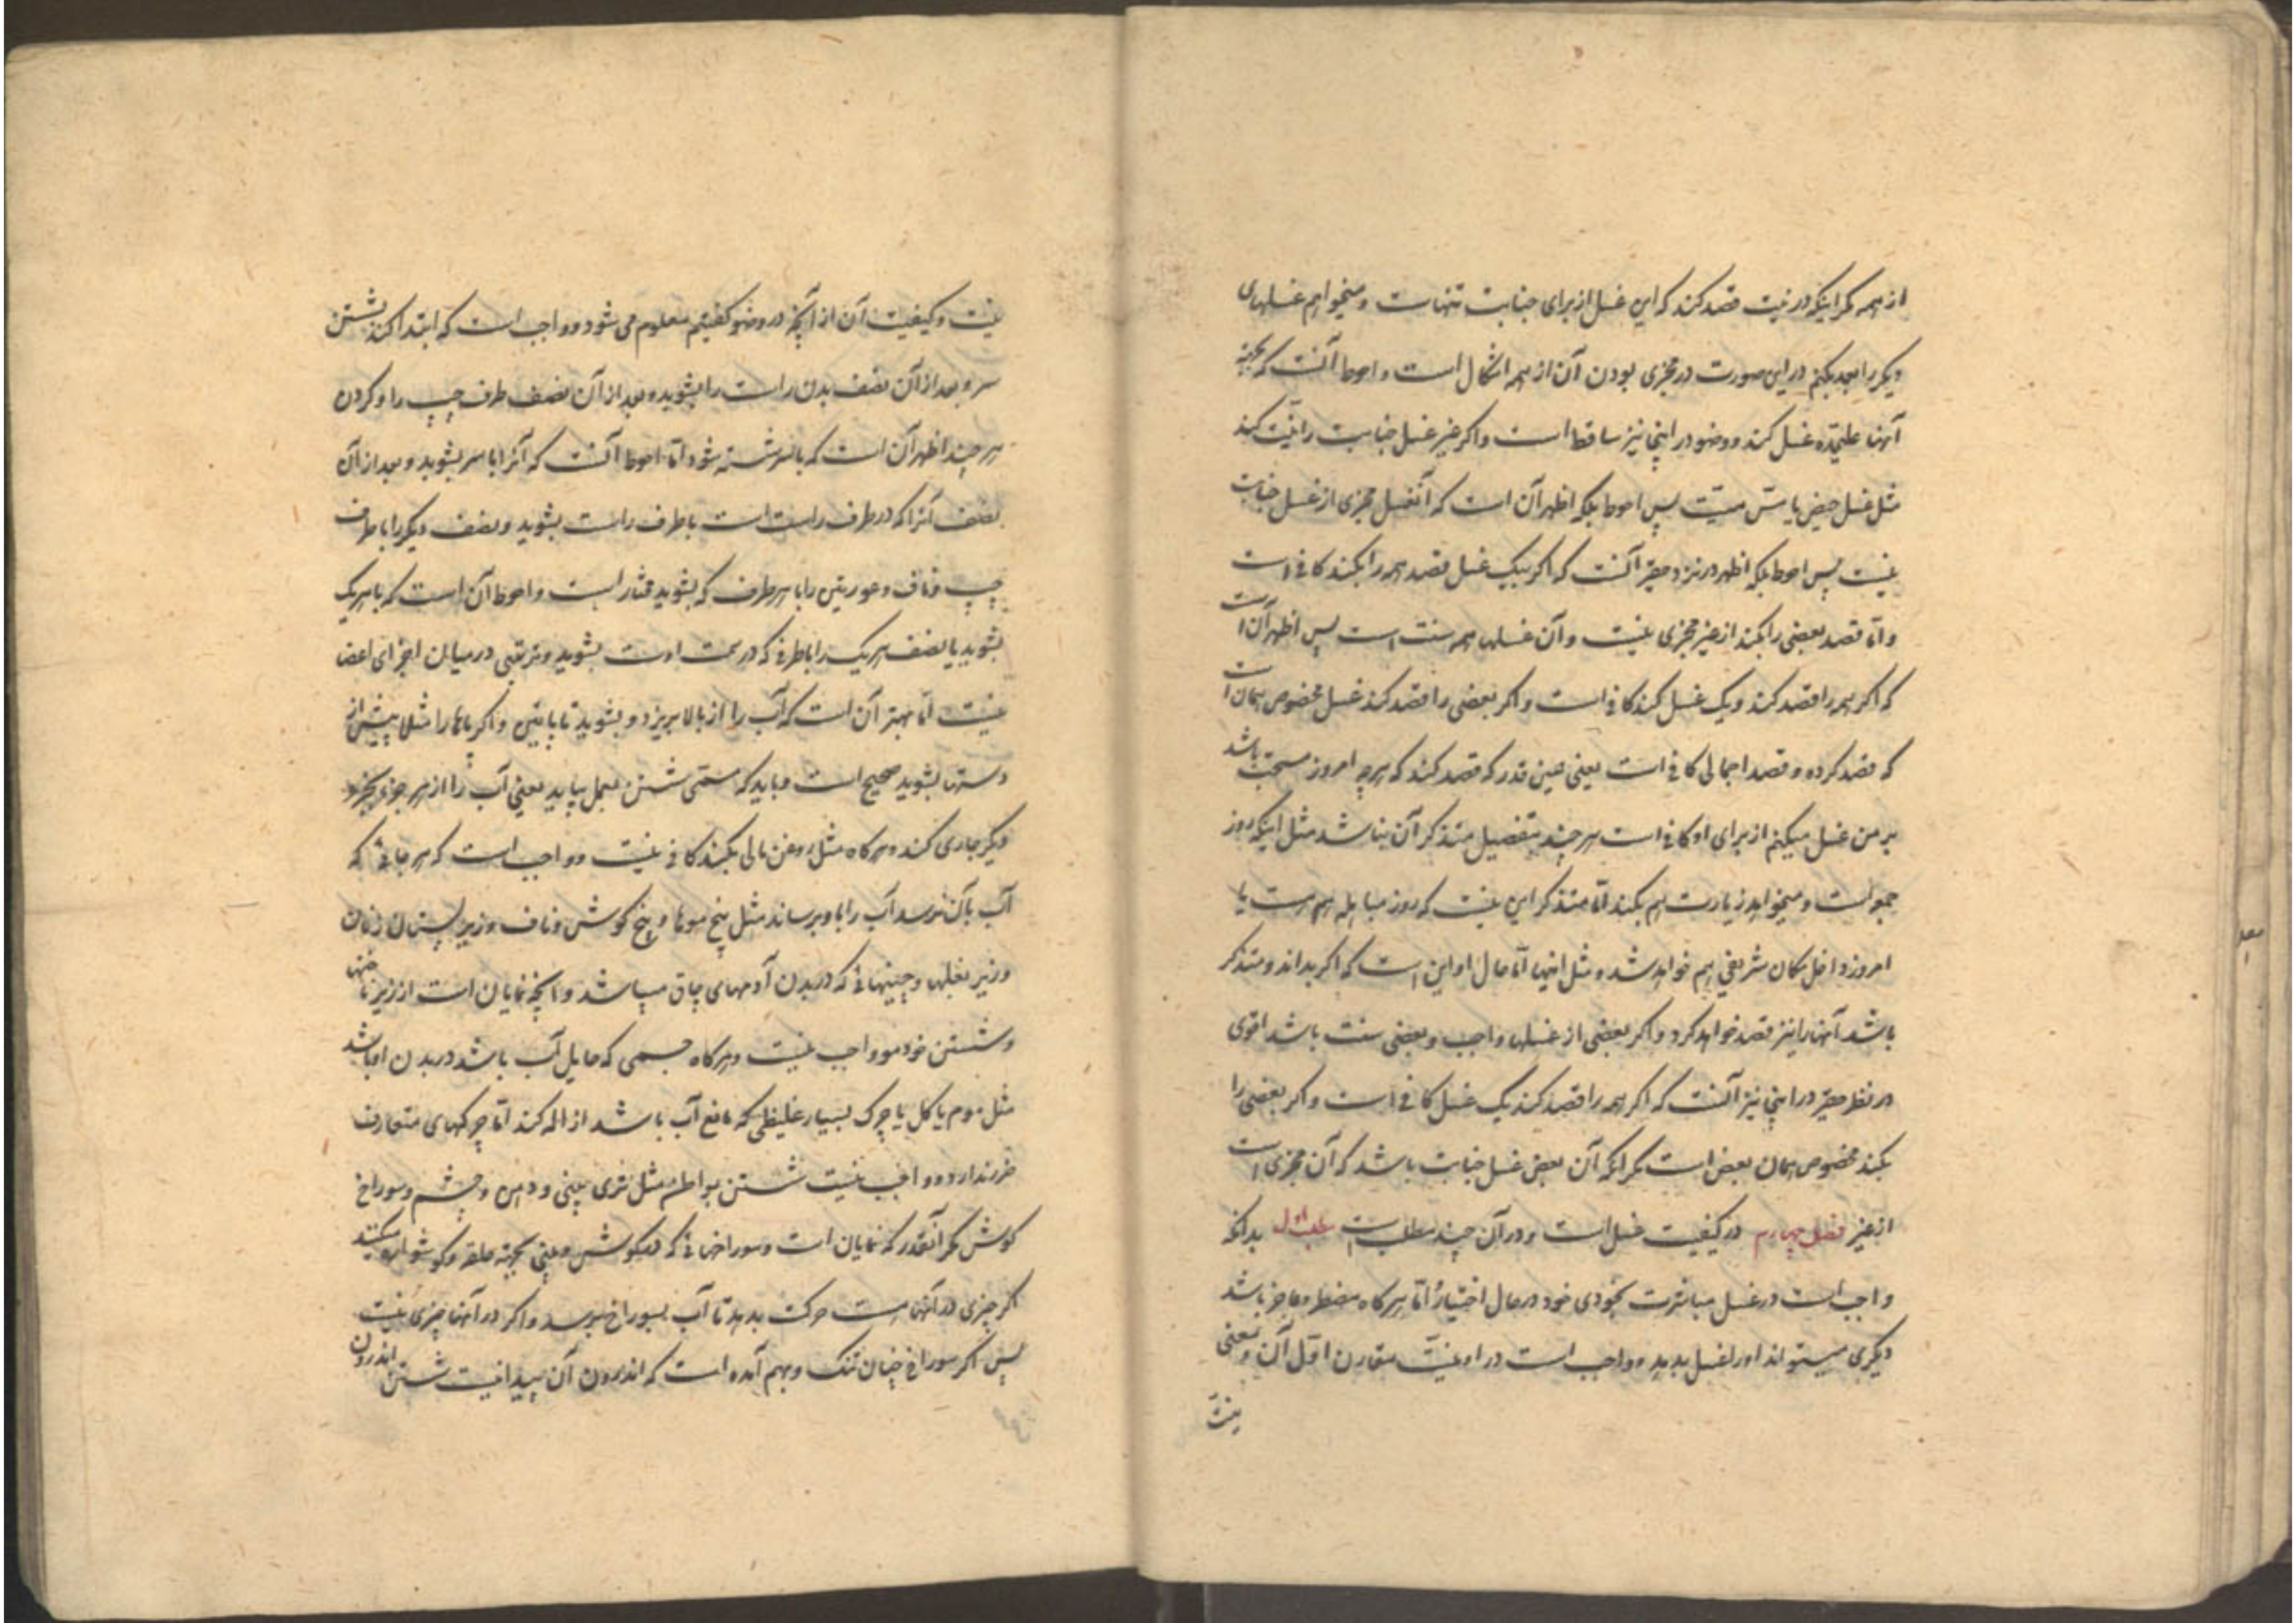 از همه مکر اینکه در نیت قصد کند که این غسل از برای جنابت تنهاست و میخواهم غسلهای
دیکر را بعد بکنم در این صورت در مجزی بودن آن از همه اشکال است و احوط آنست که بجهة
آنها علیحده غسل کند و وضو در اینجا نیز ساقط است و اکر غیر غسل جنابت را نیت کند
مثل غسل حیض یا مس میت پس احوط بلکه اظهر آن است که آنغسل مجزی از غسل جنابت
نیست پس احوط بلکه اظهر در نزد حقیر آنست که اکر بیک غسل قصد همه را بکند کافی است
و اما قصد بعضی را بکند از غیر مجزی نیست و آن غسلها همه سنت است پس اظهر آن است
که اکر همه را قصد کند و یک غسل کند کافی است و اکر بعضی را قصد کند غسل مخصوص همان است
که قصد کرده و قصد اجمالی کافی است یعنی همین قدر که قصد کند که هرچه امروز مستحب باشد
بر من غسل میکنم از برای او کافی است هر چند بتفصیل متذکر آن نباشد مثل اینکه روز
جمعه است و میخواهد زیارت هم بکند اما متذکر این نیست که روز مباهله هم هست یا
امروز داخل مکان شریفی هم خواهد شد و مثل اینها اما حال او این است که اکر بداند و متذکر
باشد آنها را نیز قصد خواهد کرد و اکر بعضی از غسلها واجب و بعضی سنت باشد اقوی
در نظر حقیر در اینجا نیز آنست که اکر همه را قصد کند یک غسل کافی است و اکر بعضی را
بکند مخصوص همان بعض است مکر آنکه آن بعض غسل جنابت باشد که آن مجزی است
از غیر فصل چهارم در کیفیت غسل است و در آن چند مطلب است مطلب اول بدانکه
واجب است در غسل مباشرت بخودی خود در حال اختیار و اما هر کاه مضطر و عاجز باشد
دیکری میتواند او را غسل بدهد و واجب است در او نیت مقارن اول آن و معنی
نیت
نیت و کیفیت آن از آنچه در وضو کفتیم معلوم می شود و واجب است که ابتدا کند بشستن
سر و بعد از آن نصف بدن راست را بشوید و بعد از آن نصف طرف چپ را و کردن
هر چند اظهر آن است که با سر شسته شود اما احوط آنست که آنرا با سر بشوید و بعد از آن
نصف آنرا که در طرف راست است با طرف راست بشوید و نصف دیکر را با طرف
چپ و ناف و عورتین را با هر طرف که بشوید مختار است و احوط آن است که با هر یک
بشوید یا نصف هر یک را با طرفی که در سمت اوست بشوید و ترتیبی در میان اجزای اعضا
نیست اما بهتر آن است که آب را از بالا بریزد و بشوید تا پایین و اکر پاها را مثلا پیش از
دستها بشوید صحیح است و باید که مسمی شستن بعمل بیاید یعنی آب را از هر جزو بجزو
دیکر جاری کند و هر کاه مثل روغن مالی بکند کافی نیست و واجب است که هر جائی که
آب بآن نرسد آب را باو برساند مثل بیخ موها و بیخ کوش و ناف و زیر پستان زنان
و زیر بغلها و چینهائی که در بدن آدمهای چاق میباشد و آنچه نمایان است از زیر ناخنها
و شستن خود مو واجب نیست و هر کاه جسمی که حایل آب باشد در بدن او باشد
مثل موم یا کل یا چرک بسیار غلیظی که مانع آب باشد ازاله کند اما چرکهای متعارف
ضرر ندارد و واجب نیست شستن بواطن مثل توی بینی و دهن و چشم و سوراخ
کوش مکر آنقدر که نمایان است و سوراخهائی که در کوش و بینی بجهة حلقه و کوشواره میکنند
اکر چیزی در آنها هست حرکت بدهد تا آب بسوراخ برسد و اکر در آنها چیزی نیست
پس اکر سوراخ چنان تنک و بهم آمده است که اندرون آن پیدا نیست شستن اندرون